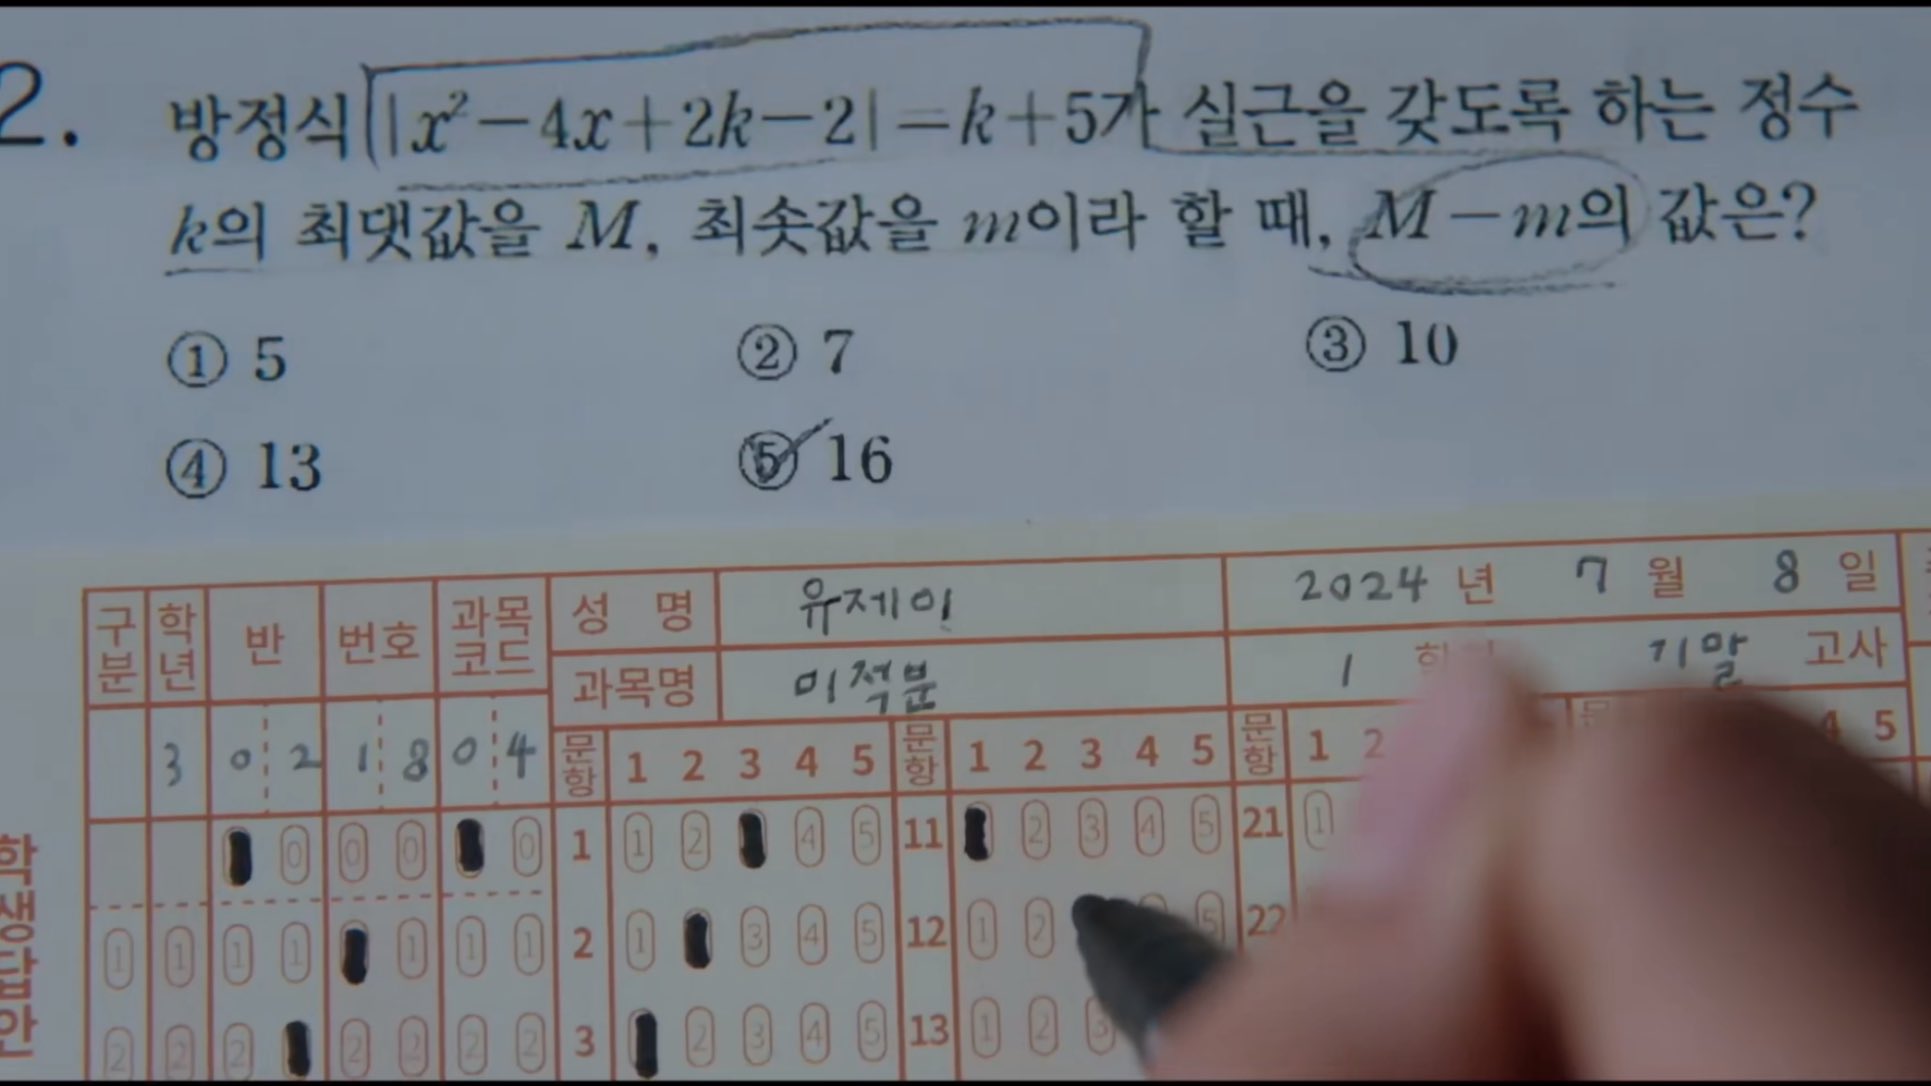 2. 방정식 |x²-4x+2k-2|=k+5가 실근을 갖도록 하는 정수
k의 최댓값을 M, 최솟값을 m이라 할 때, M-m의 값은?
① 5 ② 7 ③ 10
④ 13 ⑤ 16
구분 학년 반 번호 과목코드 성 명 유제이 2024 년 7 월 8 일
과목명 미적분 1 기말 고사
3 0 2 1 8 0 4 문항 1 2 3 4 5 문항 1 2 3 4 5 문항 1 2 4 5
0 0 0 0 1 1 2 4 5 11 2 3 4 5 21 1
1 1 1 1 1 1 1 2 1 3 4 5 12 1 2 5 22
2 2 2 2 2 2 2 3 2 3 4 5 13 1 2 3
학생답안